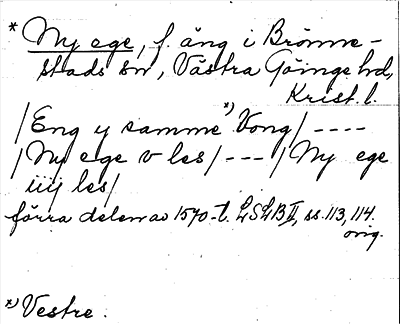 * Ny ege, f. äng i Brönne-
stads sn, Västra Göinge hd,
Krist. l.
/Eng y samme *) Vong/ ----
/Ny ege v les/ --- / Ny ege
iiij les/
förra delen av 1570-t. LSLB II, ss. 113, 114.
orig.
*) Vestre.